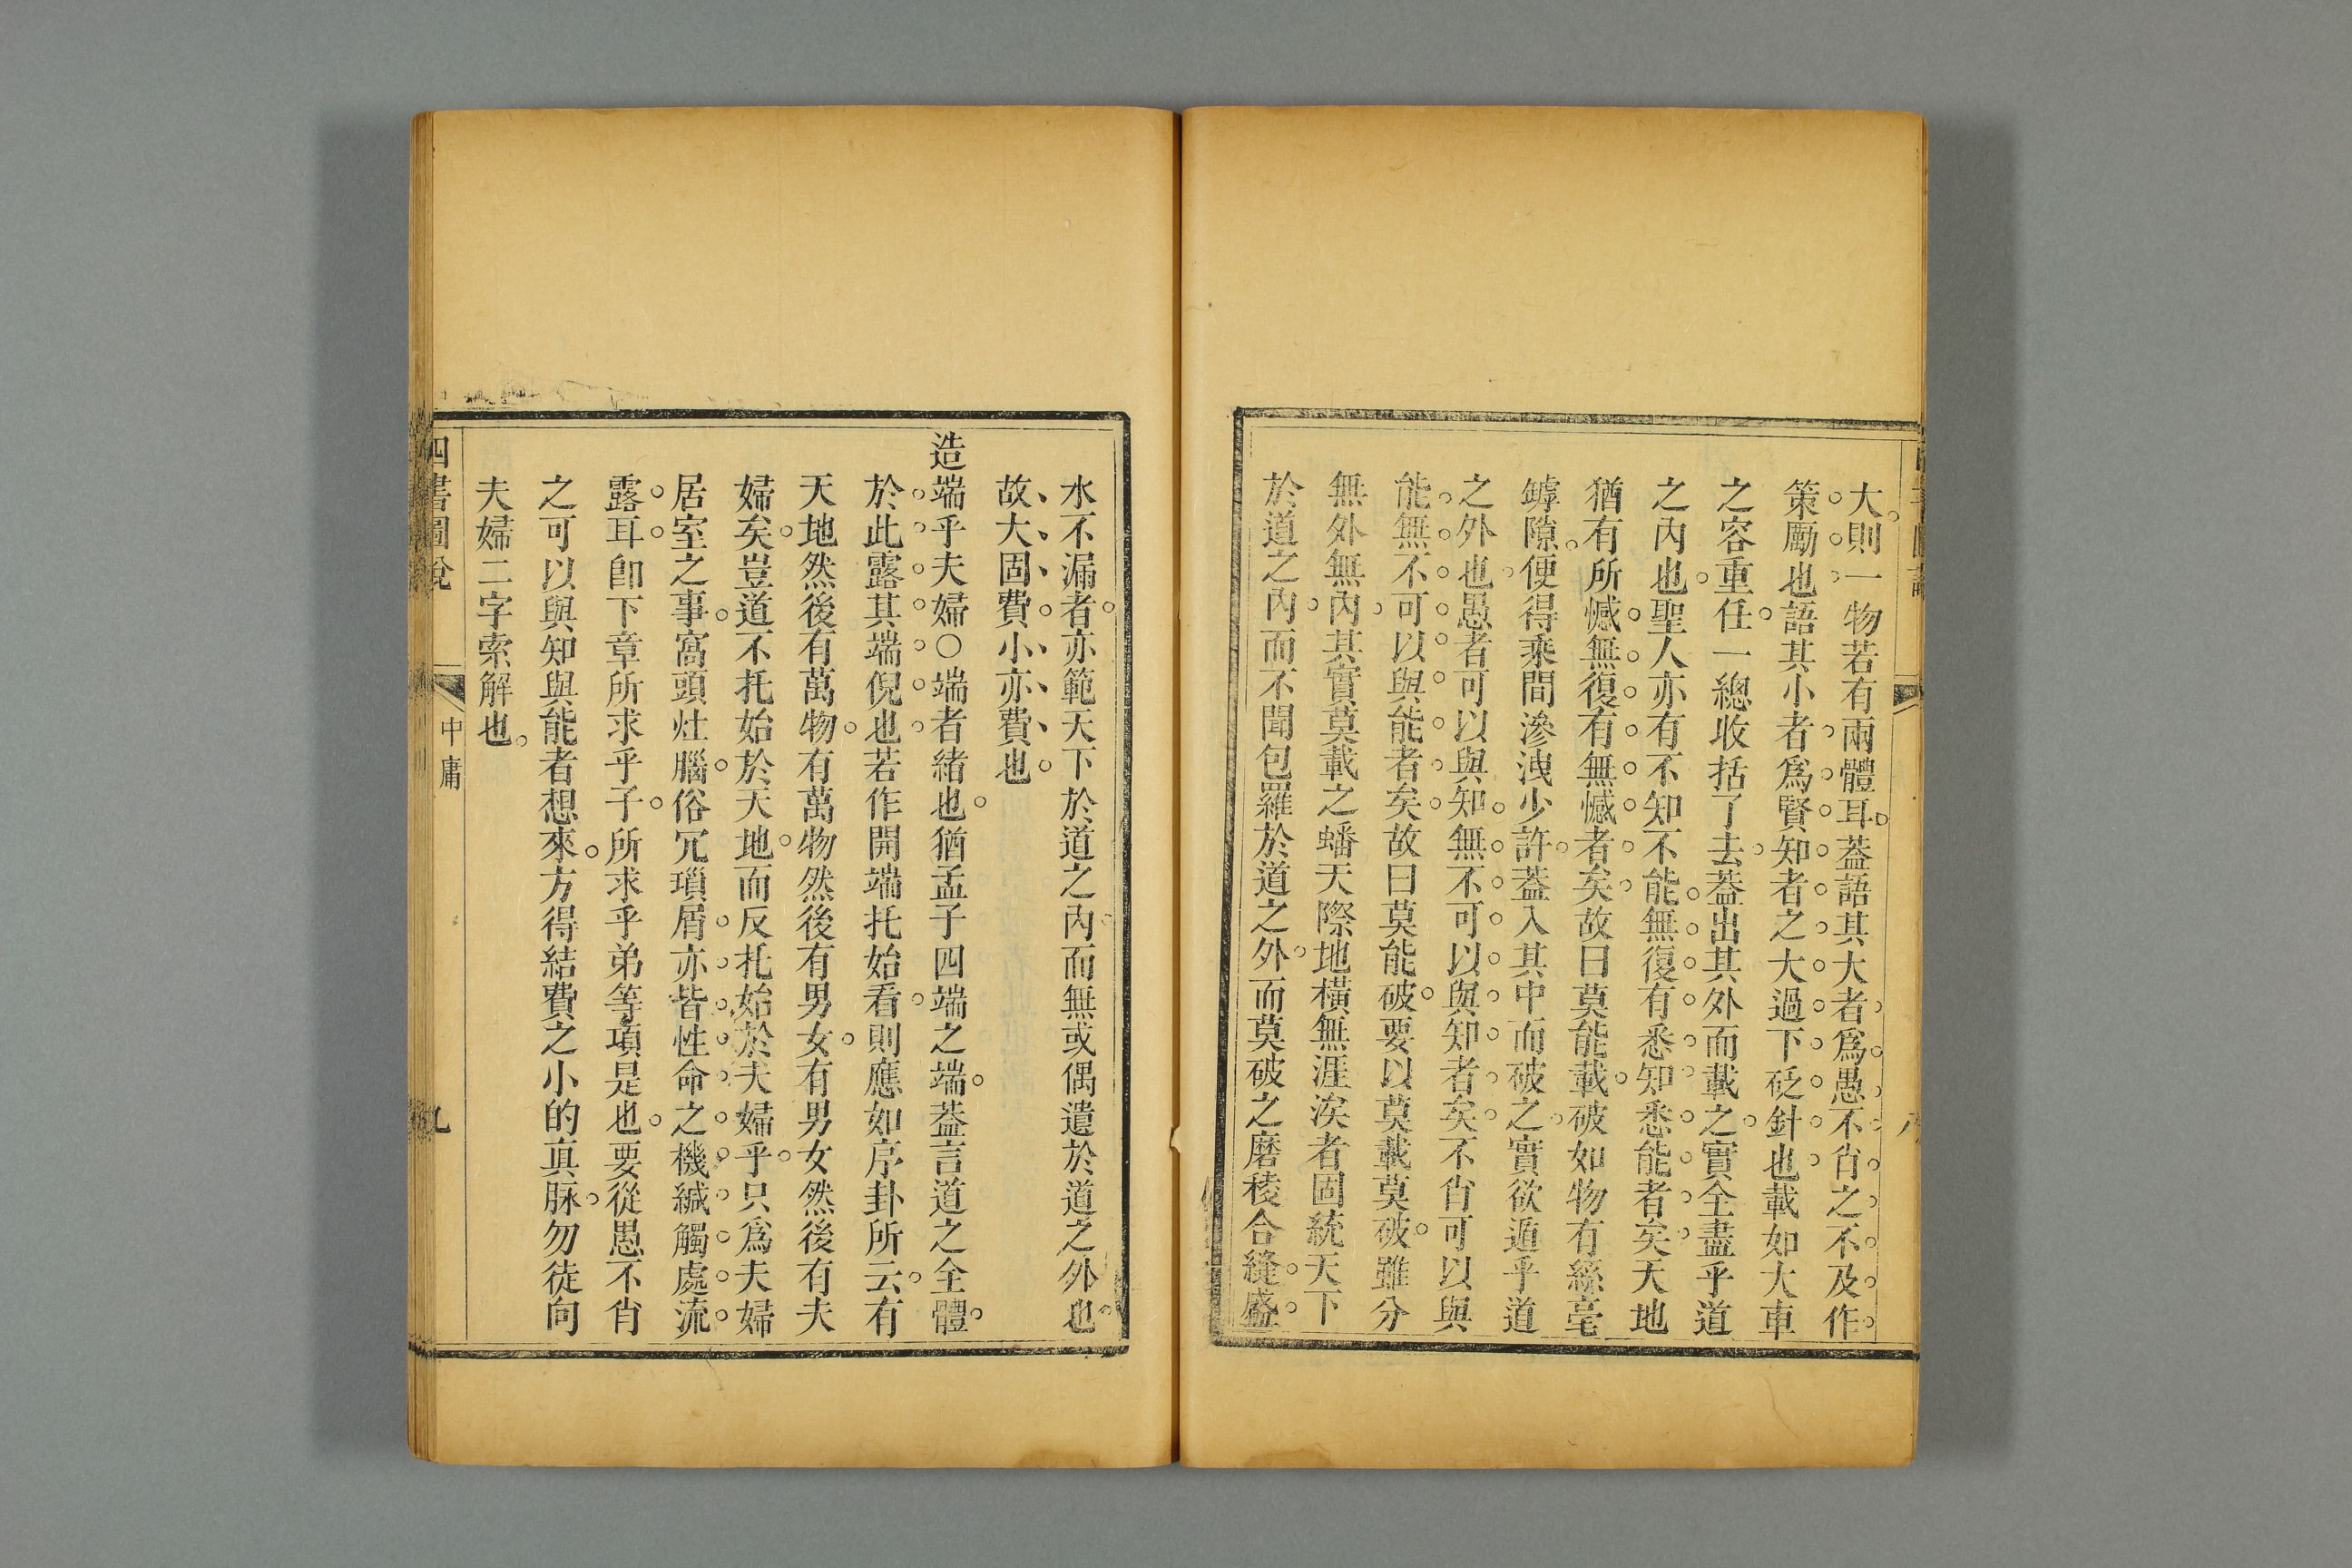 大則一物若有兩體耳葢語其大者爲愚不肖之不及作
策勵也語其小者爲賢知者之大過下砭針也載如大車
之容重任一總收括了去葢出其外而載之實全盡乎道
之內也聖人亦有不知不能無復有悉知悉能者矣天地
猶有所憾無復有無憾者矣故曰莫能載破如物有絲毫
罅隙便得乘間滲洩少許葢入其中而破之實欲遁乎道
之外也愚者可以與知無不可以與知者矣不肖可以與
能無不可以與能者矣故曰莫能破要以莫載莫破雖分
無外無內其實莫載之蟠天際地橫無涯涘者固統天下
於道之內而不聞包羅於道之外而莫破之磨稜合縫盛
八
水不漏者亦範天下於道之內而無或偶遺於道之外也
故大固費小亦費也
造端乎夫婦○端者緒也猶孟子四端之端葢言道之全體
於此露其端倪也若作開端托始看則應如序卦所云有
天地然後有萬物有萬物然後有男女有男女然後有夫
婦矣豈道不托始於天地而反托始於夫婦乎只爲夫婦
居室之事窩頭灶腦俗冗瑣屑亦皆性命之機緘觸處流
露耳卽下章所求乎子所求乎弟等項是也要從愚不肖
之可以與知與能者想來方得結費之小的真脉勿徒向
夫婦二字索解也
四書圖說 中庸 九